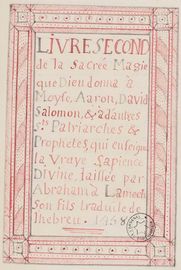 LIVRE SECOND
de la Sacrée Magie
que Dieu donna à
Moyse, Aaron, David
Salomon, & à dautres
Sts Patriarches &
Prophetes, qui enseigne
la Vraye Sapience
DIvine, laissée par
Abraham à Lamech
Son fils traduite de
lhebreu. 1458